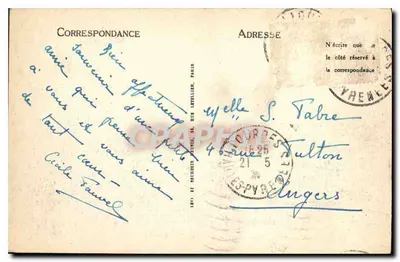 CORRESPONDANCE
ADRESSE
N'écrire que sur
le côté réservé à
la correspondance
Bien affectueux
souvenir d'une petite
amie qui pense bien
à vous et vous aime
de tout cœur.
Cécile Fauvel
LEVY ET NEURDEIN REUNIS, 44, RUE LETELLIER, PARIS
Melle S. Fabre
4 bis rue Fulton
Angers
LOURDES
21 - 5
Htes PYRENEES